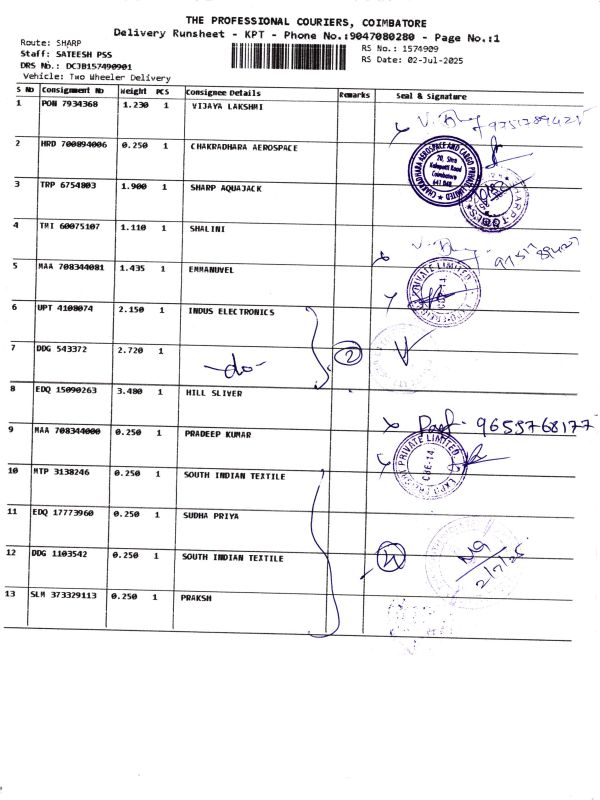 THE PROFESSIONAL COURIERS, COIMBATORE
Delivery Runsheet - KPT - Phone No.:9047080280 - Page No.:1
Route: SHARP
RS No.: 1574909
Staff: SATEESH PSS
RS Date: 02-Jul-2025
DRS No.: DCJB1574909O1
Vehicle: Two Wheeler Delivery
S No Consignment No Weight PCS Consignee Details Remarks Seal & Signature
1 PON 7934368 1.230 1 VIJAYA LAKSHMI
2 HRD 700894006 0.250 1 CHAKRADHARA AEROSPACE
CHAKRADHARA AEROSPACE AND CARGO PRIVATE LIMITED
Coimbatore
3 TRP 6754803 1.900 1 SHARP AQUAJACK
4 TMI 60075107 1.110 1 SHALINI
5 MAA 708344081 1.435 1 EMMANUVEL
PRIVATE LIMITED
CBE-14
6 UPT 4108074 2.150 1 INDUS ELECTRONICS
7 DDG 543372 2.720 1 -do- 2
8 EDQ 15090263 3.480 1 HILL SLIVER
9655768177
9 MAA 708344000 0.250 1 PRADEEP KUMAR
PRIVATE LIMITED
CBE-14
10 MTP 3138246 0.250 1 SOUTH INDIAN TEXTILE
11 EDQ 17773960 0.250 1 SUDHA PRIYA
12 DDG 1103542 0.250 1 SOUTH INDIAN TEXTILE
2/7/25
13 SLM 373329113 0.250 1 PRAKSH